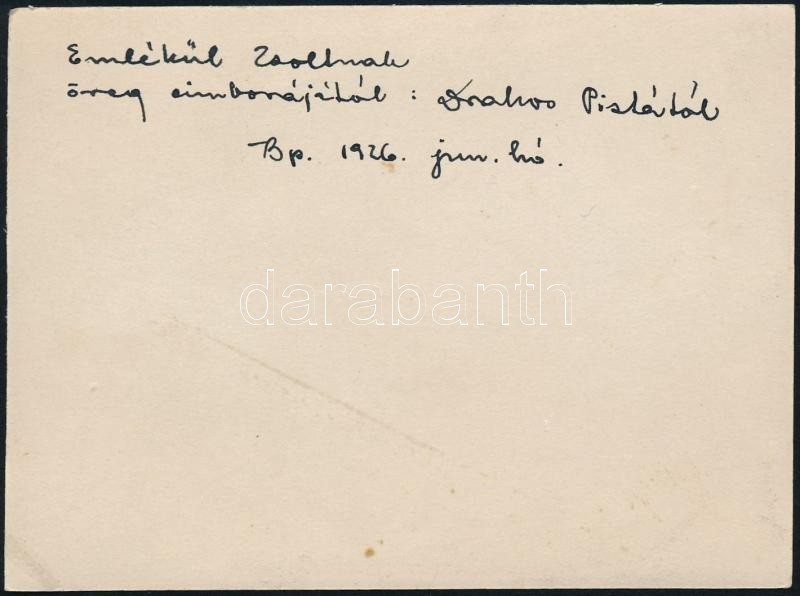 Emlékül Zsoltnak
öreg cimborájától: Drahos Pistától
Bp. 1926. jun. hó.
darabanth